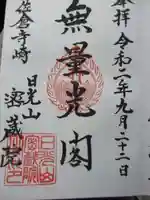 奉拝 令和二年九月二十二日
無量光閣
佐倉寺崎
日光山
密蔵院